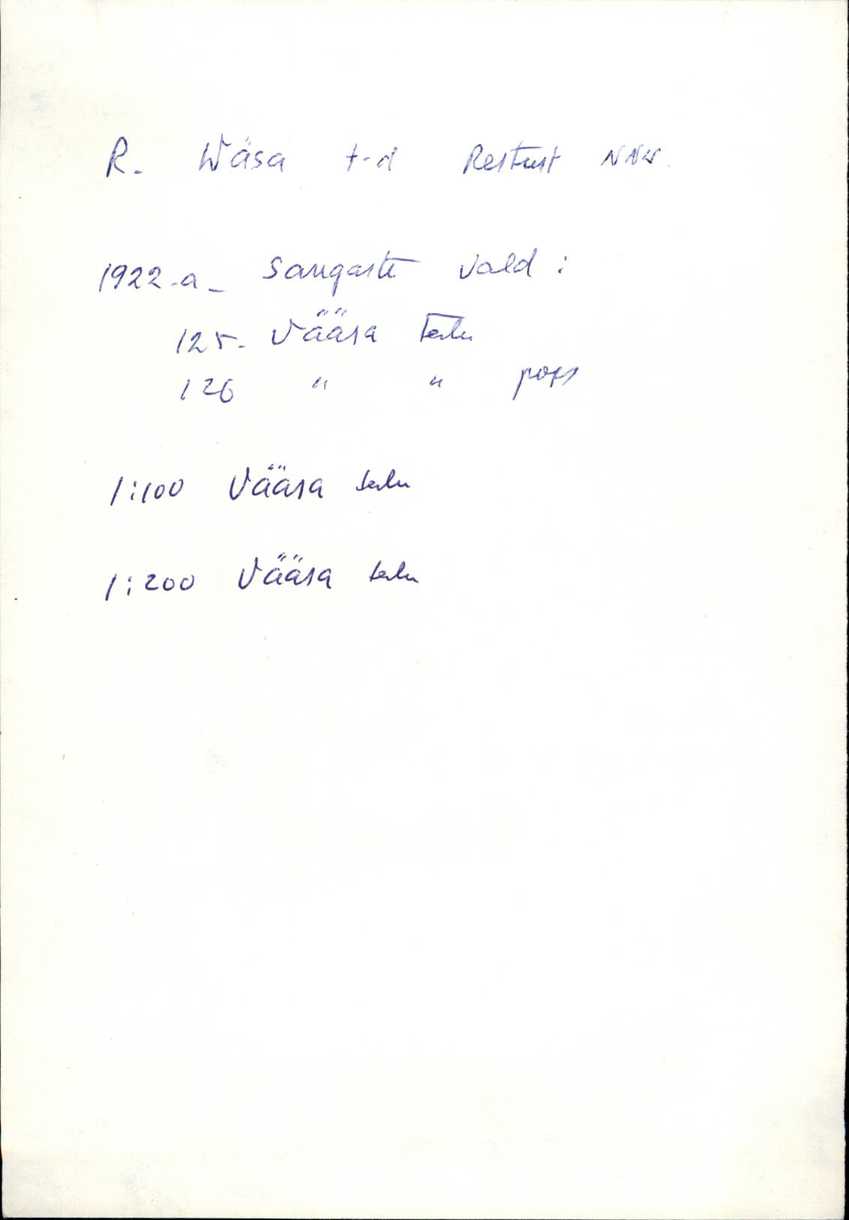 R. Wäsa t-d Restust NNW.
1922.a_ Sangaste vald :
125. Väärsa talu
126 " " pops
1:100 Väärsa talu
1:200 Väärsa talu